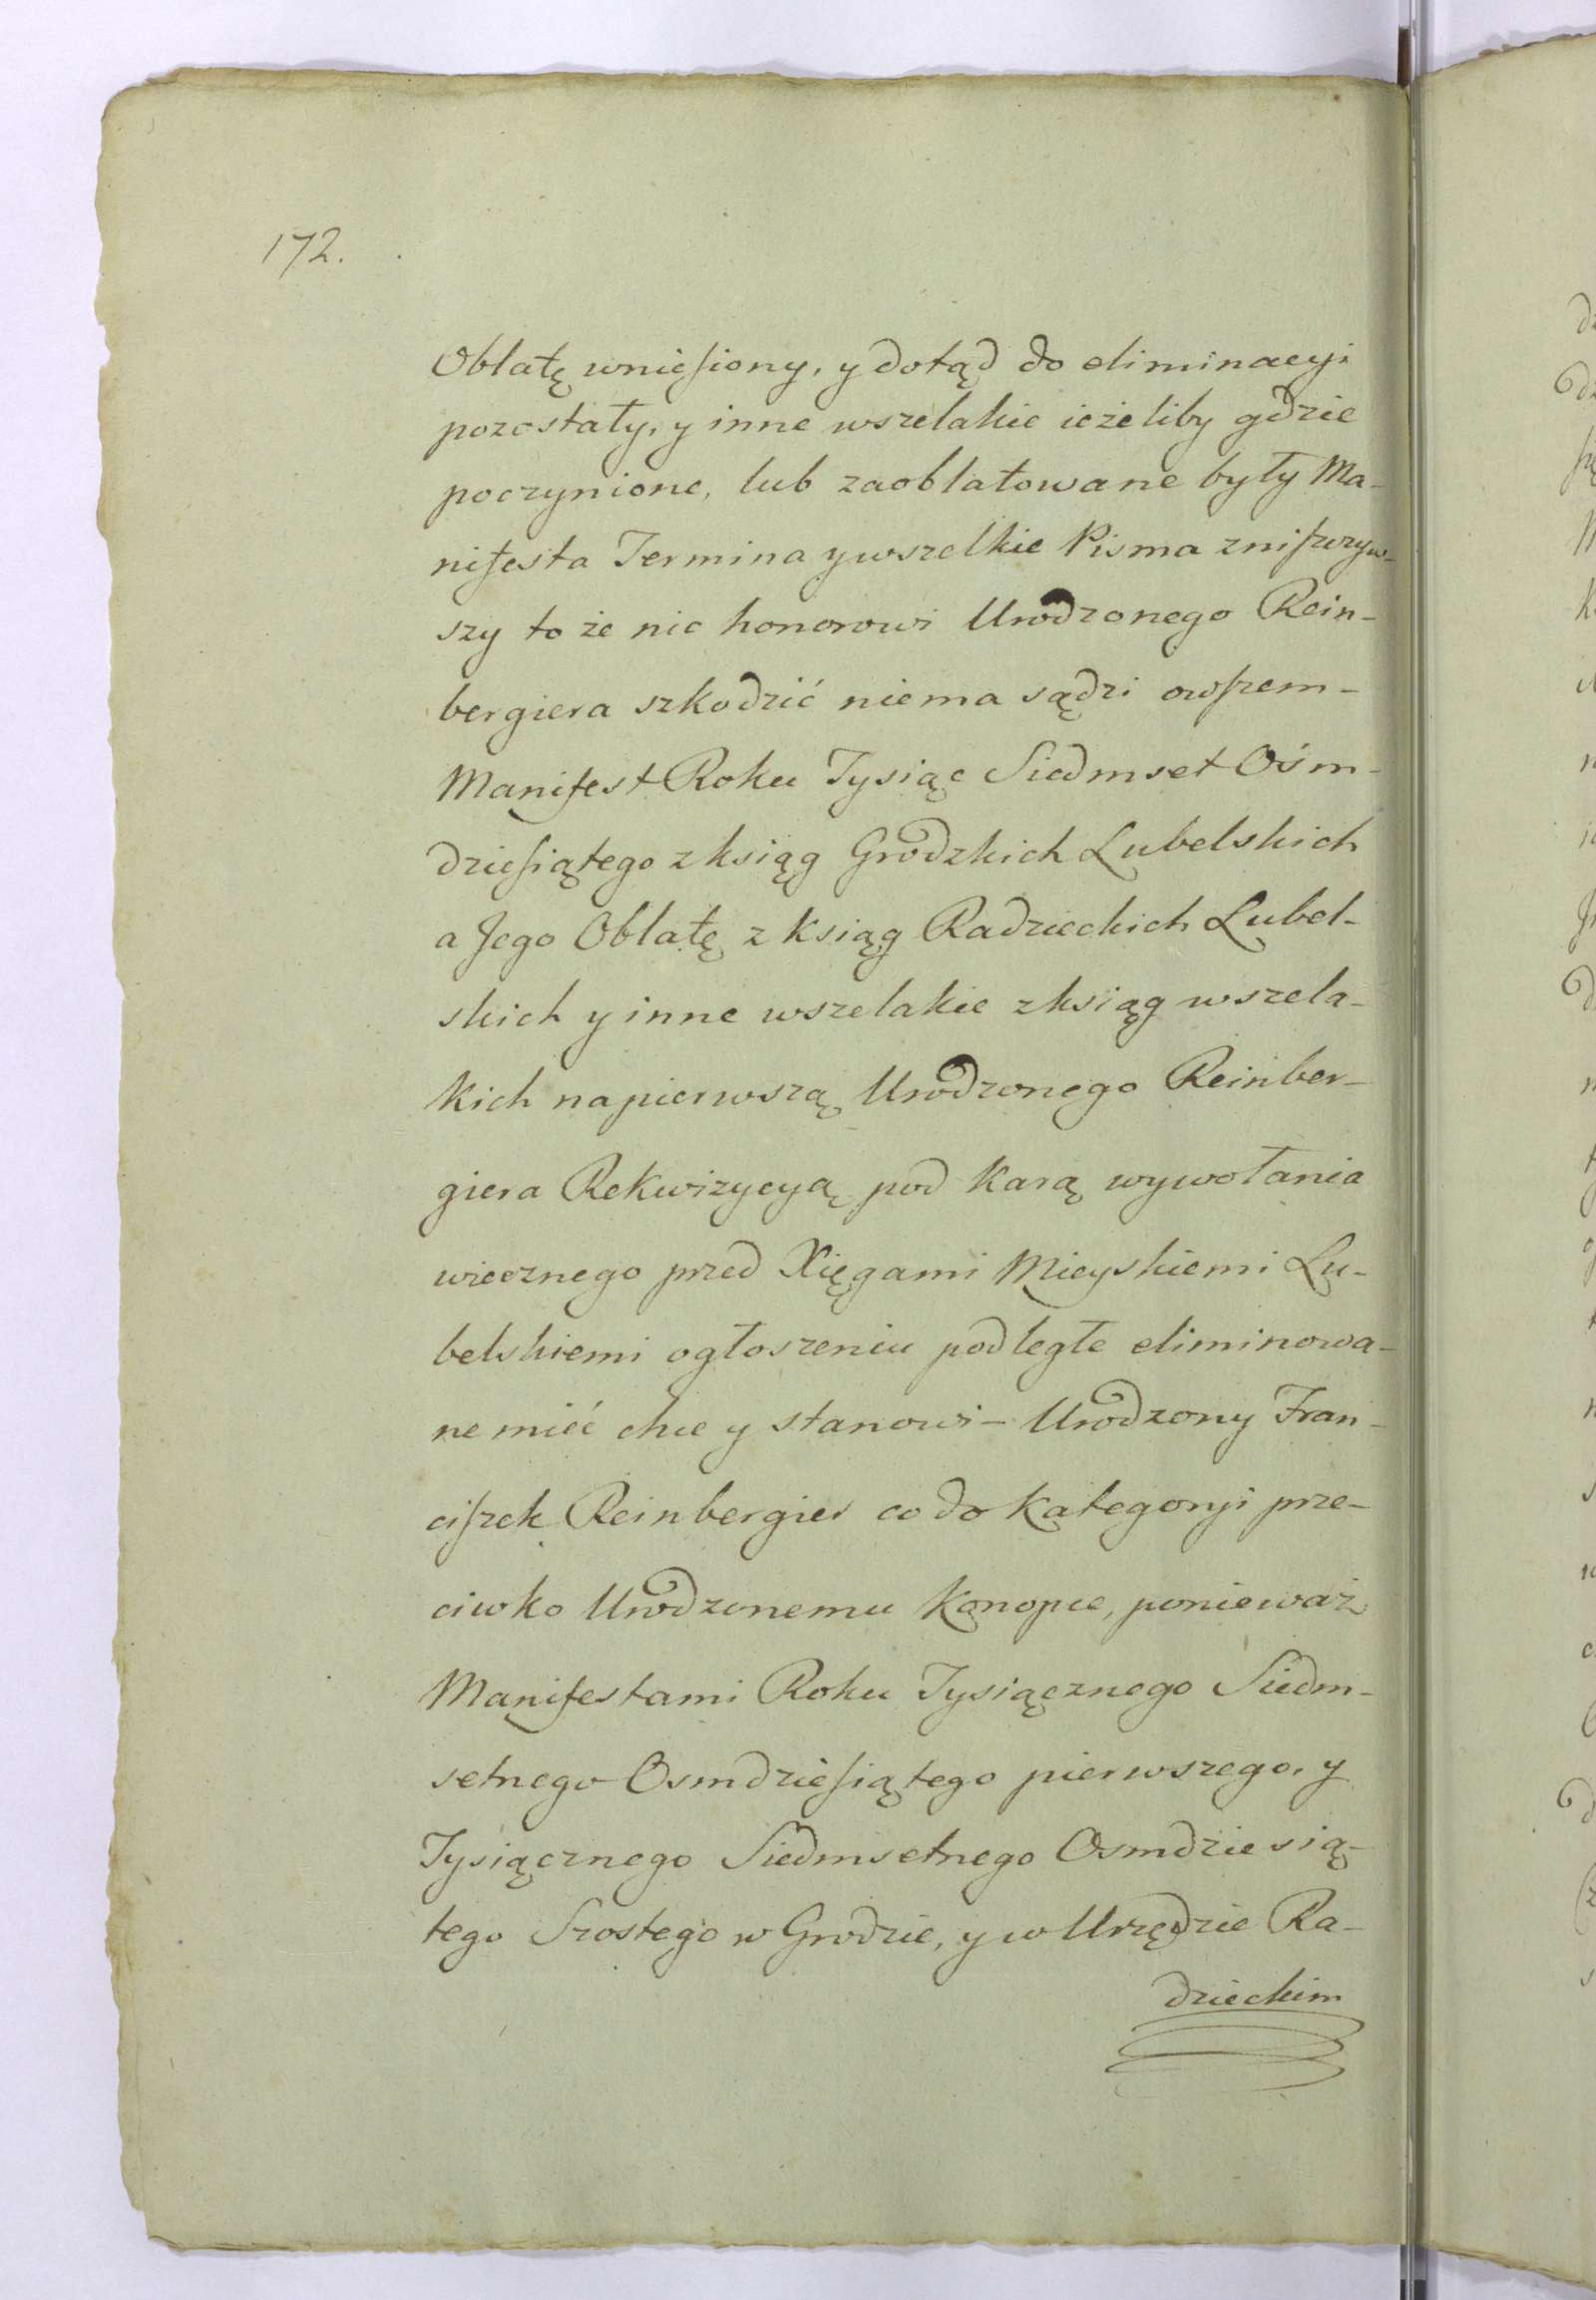 172.
Oblatę wniesiony, y dotąd do eliminacyi
pozostały, y inne wszelakie ieżeliby gdzie
poczynione, lub zaoblatowane były Ma-
nifesta Termina y wszelkie Pisma zniszczyw-
szy to że nic honorowi Urodzonego Rein-
bergiera szkodzić niema sądzi owszem -
Manifest Roku Tysiąc Siedmset Ośm-
dziesiątego z ksiąg Grodzkich Lubelskich
a Jego Oblatę z Ksiąg Radzieckich Lubel-
skich y inne wszelakie z ksiąg wszela-
kich na pierwszą Urodzonego Reinber-
giera Rekwizycyą pod Karą wywołania
wiecznego przed Xięgami Mieyskiemi Lu-
belskiemi ogłoszeniu podległe eliminowa-
ne mieć chce y stanowi - Urodzony Fran-
ciszek Reinbergier co do Kategoryi prze-
ciwko Urodzonemu Konopce, ponieważ
Manifestami Roku Tysiącznego Siedm-
setnego Osmdziesiątego pierwszego, y
Tysiącznego Siedmsetnego Osmdziesią-
tego Szostego w Grodzie, y w Urzędzie Ra-
dzieckim